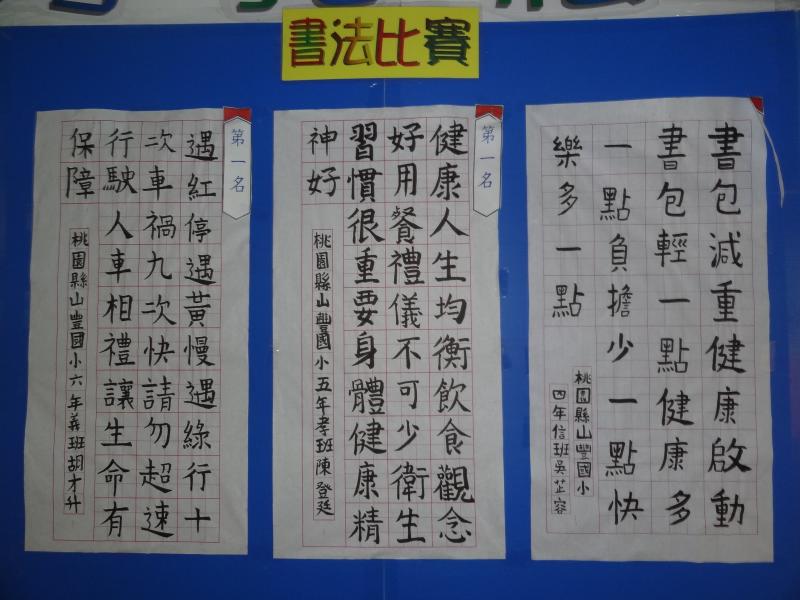 書法比賽
書包減重健康啟動
書包輕一點健康多
一點負擔少一點快
樂多一點
桃園縣山豐國小
四年信班吳芷容
第一名
健康人生均衡飲食觀念
好用餐禮儀不可少衛生
習慣很重要身體健康精
神好
桃園縣山豐國小五年孝班陳登廷
第一名
遇紅停遇黃慢遇綠行十
次車禍九次快請勿超速
行駛人車相禮讓生命有
保障
桃園縣山豐國小六年義班胡才升